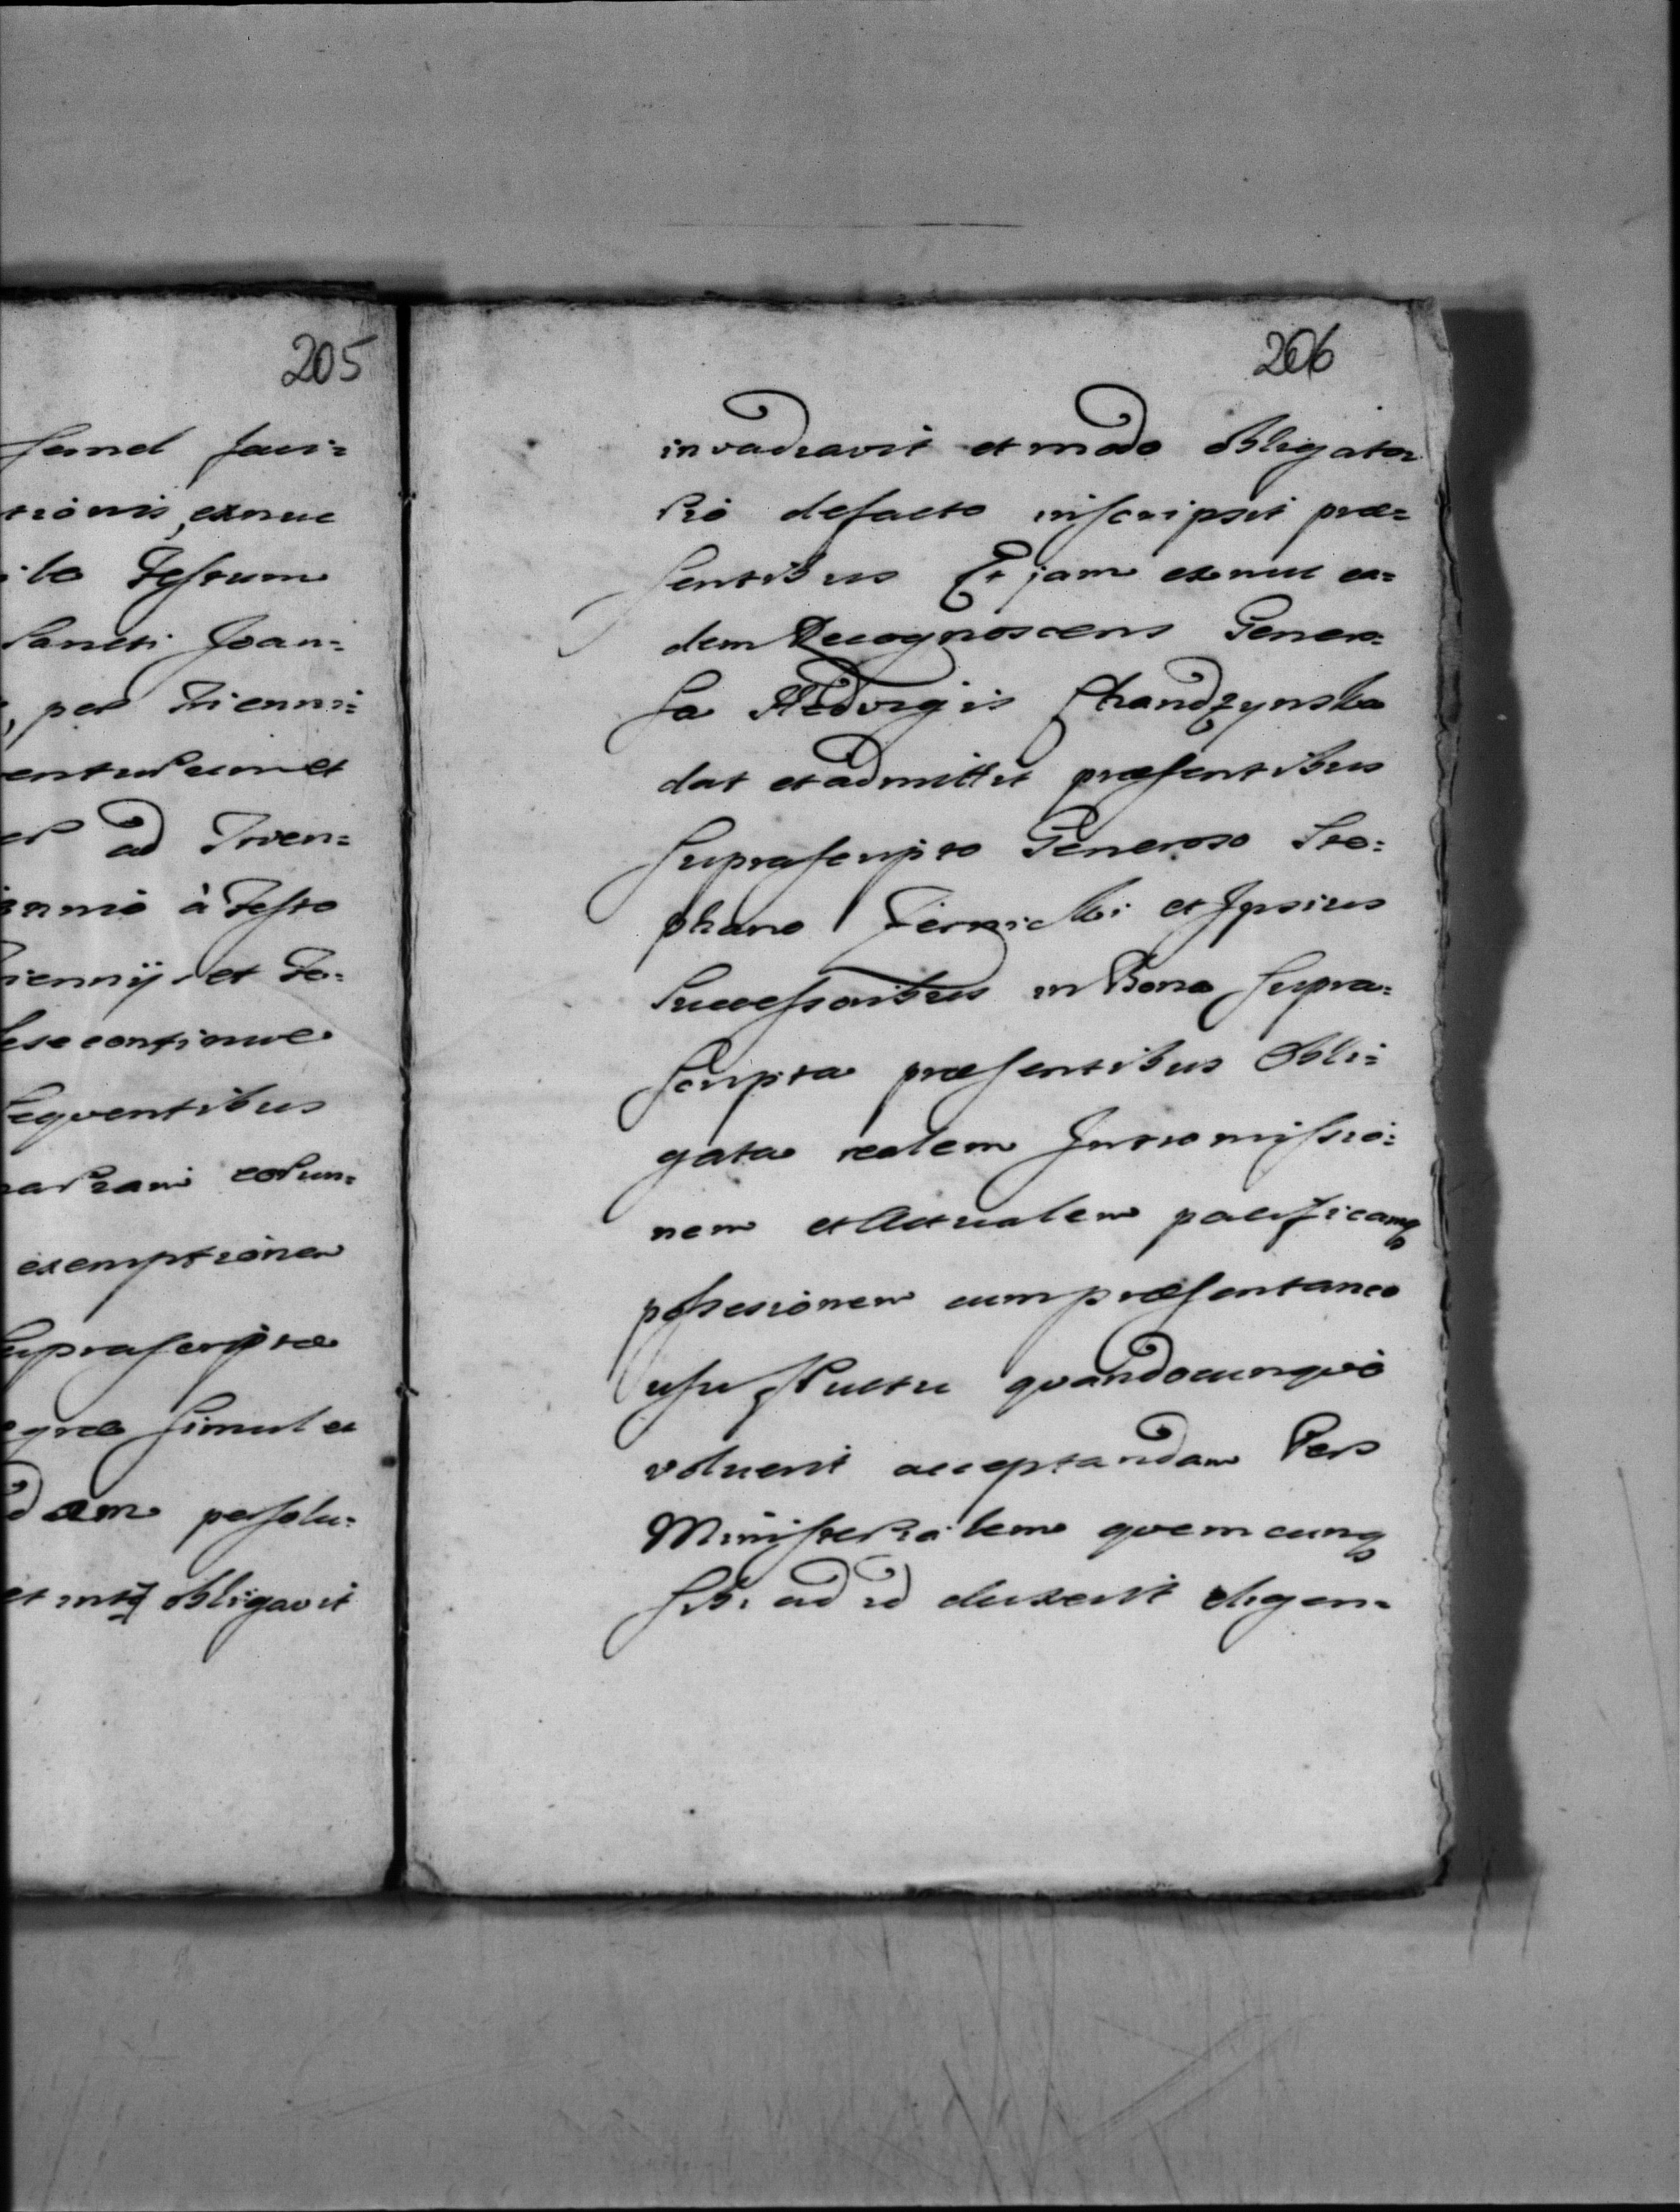 205
semel faci=
tionis, exnuc
Festum
Sancti Joan=
per Trienni=
enturum et
ad Trien=
à Festo
iennij et Fe=
se continue
sequentibus
exemptionem
suprascriptae
simul et
dam persolu=
obligavit
206
invadiavit et modo obligato
rio defacto inscripsit præ=
sentibus Et jam exnuc ea=
dem Recognoscens Genero=
sa Hedvigis Chandzynska
dat et admittit præsentibus
suprascripto Generoso Ste=
phano et Ipsius
Successoribus in Bona supra=
scripta præsentibus obli=
gata realem Intromissio=
nem et Actualem pacificamq
possesionem cum præsentaneo
usufructu quandocunque
voluerit acceptandam Per
Ministerialem quemcunq
sibi ad id duxerit eligen=